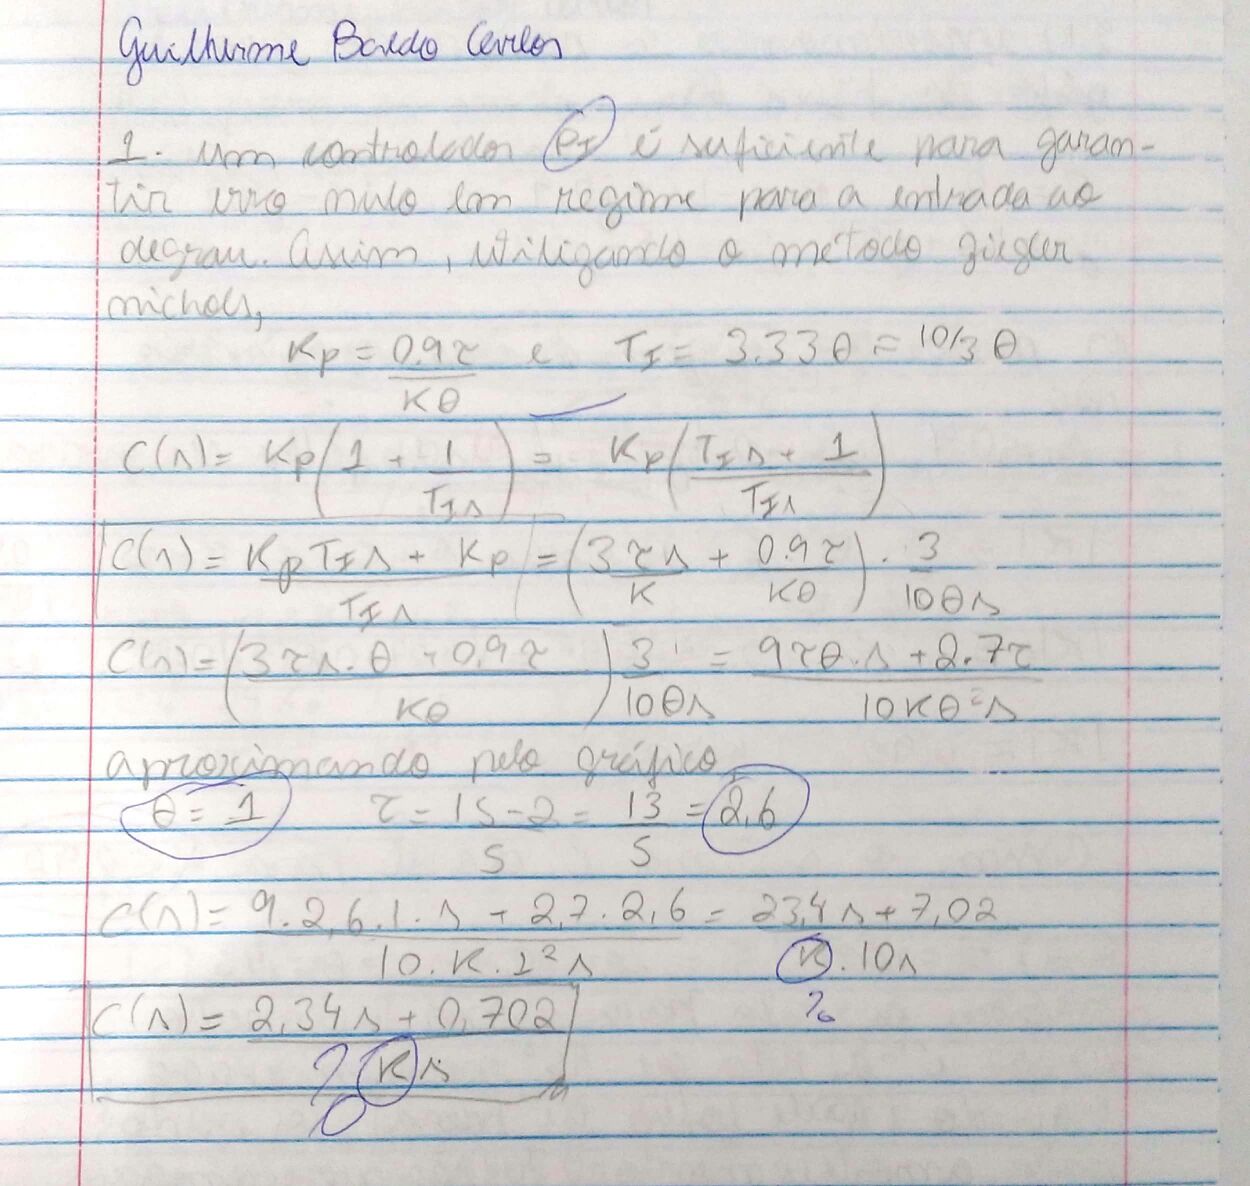 Guilherme Baldo Carlos
1. um controlador PI é suficiente para garan-
tir erro nulo em regime para a entrada ao
degrau. Assim, utilizando o método ziegler
nichols,
Kp = 0.9τ/Kθ e T_I = 3.33θ = 10/3 θ
C(s) = Kp(1 + 1/T_I s) = Kp(T_I s + 1/T_I s)
C(s) = Kp T_I s + Kp/T_I s = (3τs/K + 0.9τ/Kθ) . 3/10θs
C(s) = (3τs.θ + 0,9τ/Kθ) 3/10θs = 9τθ.s + 2.7τ/10Kθ²s
aproximando pelo gráfico,
θ = 1 τ = 15-2/5 = 13/5 = 2,6
C(s) = 9.2,6.1.s + 2,7.2,6/10.K.1²s = 23,4s + 7,02/K.10s
?
C(s) = 2,34s + 0,702/Ks
?